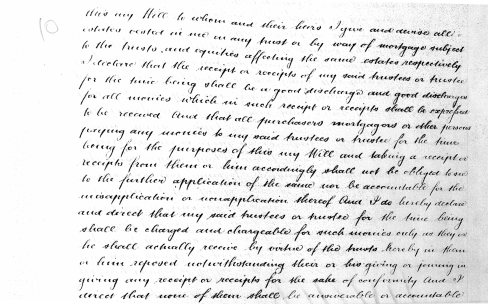 10
this my Will to whom and their heirs I give and devise all
estates vested in me on any trust or by way of mortgage subject
to the trusts and equities affecting the same estates respectively
I declare that the receipt or receipts of my said trustees or trustee
for the time being shall be a good discharge and good discharges
for all monies which in such receipt or receipts shall be expressed
to be received And that all purchasers mortgagors or other persons
paying any monies to my said trustees or trustee for the time
being for the purposes of this my Will and taking a receipt or
receipts from them or him accordingly shall not be obliged to see
to the further application of the same nor be accountable for the
misapplication or nonapplication thereof And I do hereby declare
and direct that my said trustees or trustee for the time being
shall be charged and chargeable for such monies only as they or
he shall actually receive by virtue of the trusts hereby in them
or him reposed notwithstanding their or his giving or joining in
giving any receipt or receipts for the sake of conformity And I
direct that none of them shall be answerable or accountable